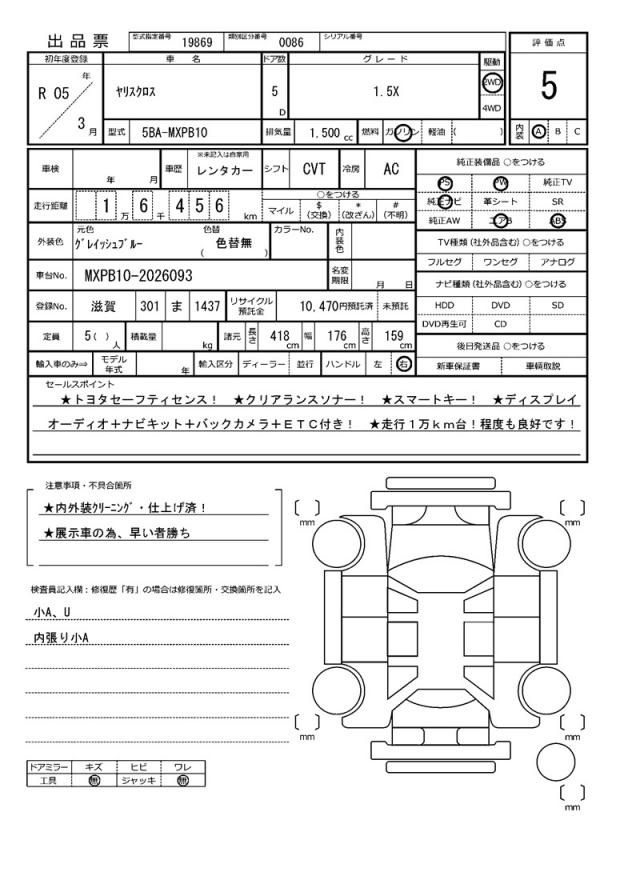 出品票
型式指定番号 19869 類別区分番号 0086 シリアル番号
評価点
5
初年度登録 車名 ドア数 グレード 駆動
R 05 年 3 月
ヤリスクロス 5 D 1.5X
2WD
4WD
型式 5BA-MXPB10 排気量 1.500 cc 燃料 ガソリン 軽油 ( )
内装 A B C
車検 年 月 車歴 ※未記入は自家用 レンタカー シフト CVT 冷房 AC
純正装備品 ○をつける
PS PW 純正TV
純正ナビ 革シート SR
純正AW エアB ABS
走行距離 1 万 6 千 4 5 6 km
○をつける
マイル $(交換) *(改ざん) #(不明)
外装色 元色 グレイッシュブルー 色替 ( 色替無 ) カラーNo. 内装色
TV種類 (社外品含む) ○をつける
フルセグ ワンセグ アナログ
車台No. MXPB10-2026093 名変期限 月 日
ナビ種類 (社外品含む) ○をつける
HDD DVD SD
DVD再生可 CD
登録No. 滋賀 301 ま 1437 リサイクル預託金 10,470円預託済 未預託
定員 5 ( ) 人 積載量 kg 諸元 長さ 418 cm 幅 176 cm 高さ 159 cm
後日発送品 ○をつける
新車保証書 車輌取説
輸入車のみ⇒ モデル年式 年 輸入区分 ディーラー 並行 ハンドル 左 右
セールスポイント
★トヨタセーフティセンス! ★クリアランスソナー! ★スマートキー! ★ディスプレイ
オーディオ+ナビキット+バックカメラ+ETC付き! ★走行1万km台!程度も良好です!
注意事項・不具合箇所
★内外装クリーニング・仕上げ済!
★展示車の為、早い者勝ち
検査員記入欄:修復歴「有」の場合は修復箇所・交換箇所を記入
小A、U
内張り小A
ドアミラー キズ ヒビ ワレ
工具 無 ジャッキ 無
mm
mm
mm
mm
mm